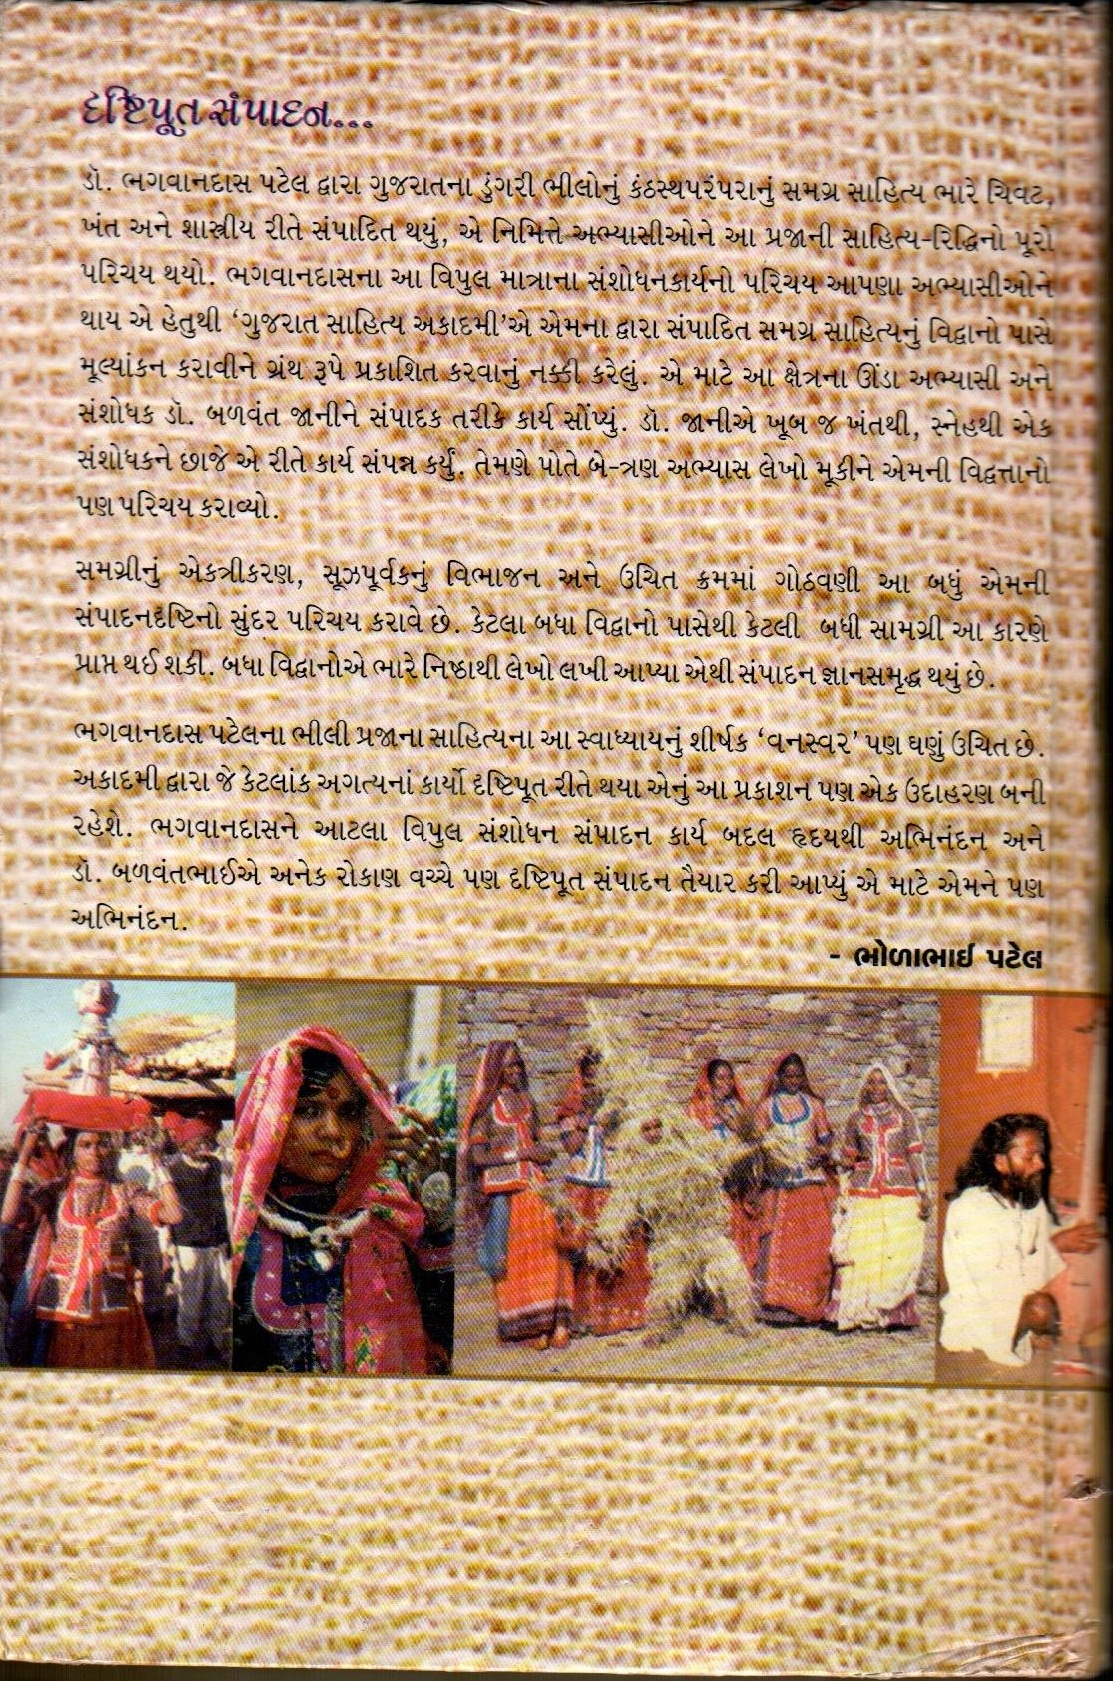 દૃષ્ટિપૂત સંપાદન...
ડૉ. ભગવાનદાસ પટેલ દ્વારા ગુજરાતના ડુંગરી ભીલોનું કંઠસ્થપરંપરાનું સમગ્ર સાહિત્ય ભારે ચિવટ,
ખંત અને શાસ્ત્રીય રીતે સંપાદિત થયું, એ નિમિત્તે અભ્યાસીઓને આ પ્રજાની સાહિત્ય-રિદ્ધિનો પૂરો
પરિચય થયો. ભગવાનદાસના આ વિપુલ માત્રાના સંશોધનકાર્યનો પરિચય આપણા અભ્યાસીઓને
થાય એ હેતુથી ‘ગુજરાત સાહિત્ય અકાદમી’એ એમના દ્વારા સંપાદિત સમગ્ર સાહિત્યનું વિદ્વાનો પાસે
મૂલ્યાંકન કરાવીને ગ્રંથ રૂપે પ્રકાશિત કરવાનું નક્કી કરેલું. એ માટે આ ક્ષેત્રના ઊંડા અભ્યાસી અને
સંશોધક ડૉ. બળવંત જાનીને સંપાદક તરીકે કાર્ય સોંપ્યું. ડૉ. જાનીએ ખૂબ જ ખંતથી, સ્નેહથી એક
સંશોધકને છાજે એ રીતે કાર્ય સંપન્ન કર્યું. તેમણે પોતે બે-ત્રણ અભ્યાસ લેખો મૂકીને એમની વિદ્વત્તાનો
પણ પરિચય કરાવ્યો.
સમગ્રીનું એકત્રીકરણ, સૂઝપૂર્વકનું વિભાજન અને ઉચિત ક્રમમાં ગોઠવણી આ બધું એમની
સંપાદનદૃષ્ટિનો સુંદર પરિચય કરાવે છે. કેટલા બધા વિદ્વાનો પાસેથી કેટલી બધી સામગ્રી આ કારણે
પ્રાપ્ત થઈ શકી. બધા વિદ્વાનોએ ભારે નિષ્ઠાથી લેખો લખી આપ્યા એથી સંપાદન જ્ઞાનસમૃદ્ધ થયું છે.
ભગવાનદાસ પટેલના ભીલી પ્રજાના સાહિત્યના આ સ્વાધ્યાયનું શીર્ષક ‘વનસ્વર’ પણ ઘણું ઉચિત છે.
અકાદમી દ્વારા જે કેટલાંક અગત્યનાં કાર્યો દૃષ્ટિપૂત રીતે થયા એનું આ પ્રકાશન પણ એક ઉદાહરણ બની
રહેશે. ભગવાનદાસને આટલા વિપુલ સંશોધન સંપાદન કાર્ય બદલ હૃદયથી અભિનંદન અને
ડૉ. બળવંતભાઈએ અનેક રોકાણ વચ્ચે પણ દૃષ્ટિપૂત સંપાદન તૈયાર કરી આપ્યું એ માટે એમને પણ
અભિનંદન.
- ભોળાભાઈ પટેલ